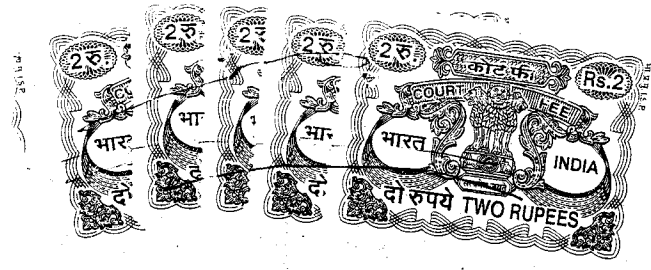 2 रु 2 रु 2 रु 2 रु 2 रु कोर्ट फी Rs.2
COURT FEE
भार भा भा भारत INDIA
दो रुपये TWO RUPEES